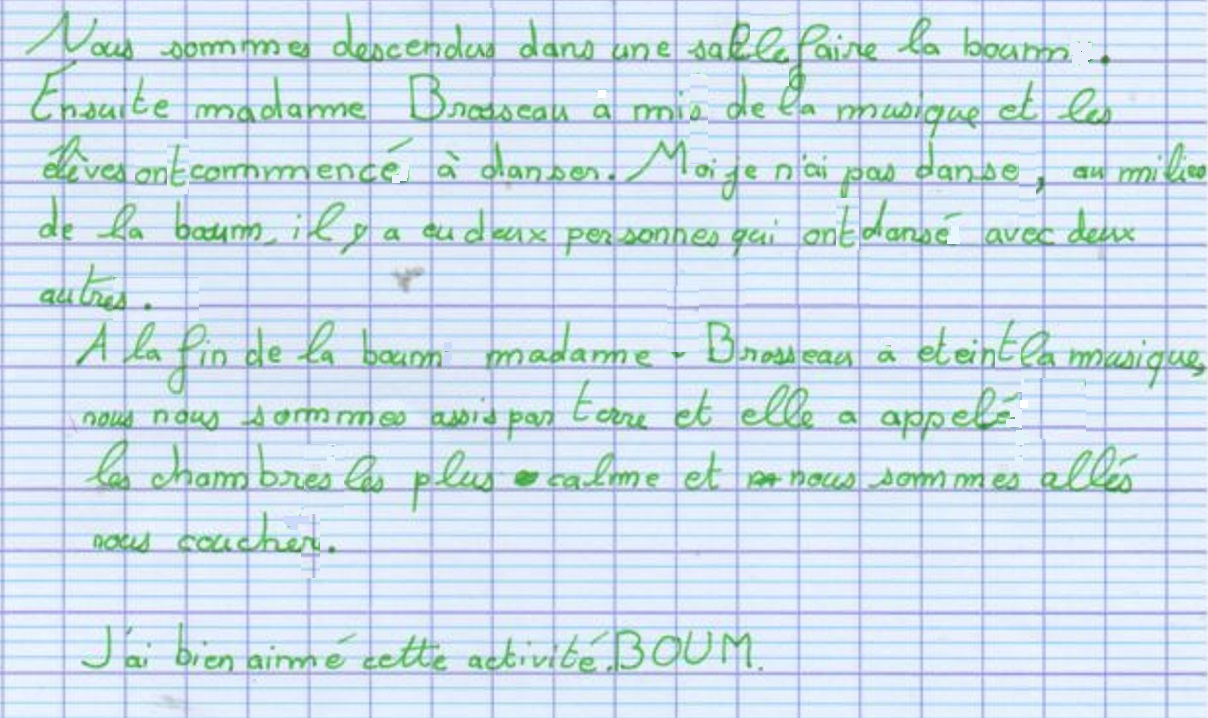 Nous sommes descendus dans une salle faire la boum.
Ensuite madame Brosseau a mis de la musique et les
élèves ont commencé à danser. Moi je n'ai pas danse, au milieu
de la boum, il y a eu deux personnes qui ont dansé avec deux
autres.
A la fin de la boum madame Brosseau a eteint la musique,
nous nous sommes assis par terre et elle a appelé
les chambres les plus calme et nous sommes allés
nous coucher.
J'ai bien aimé cette activité. BOUM.